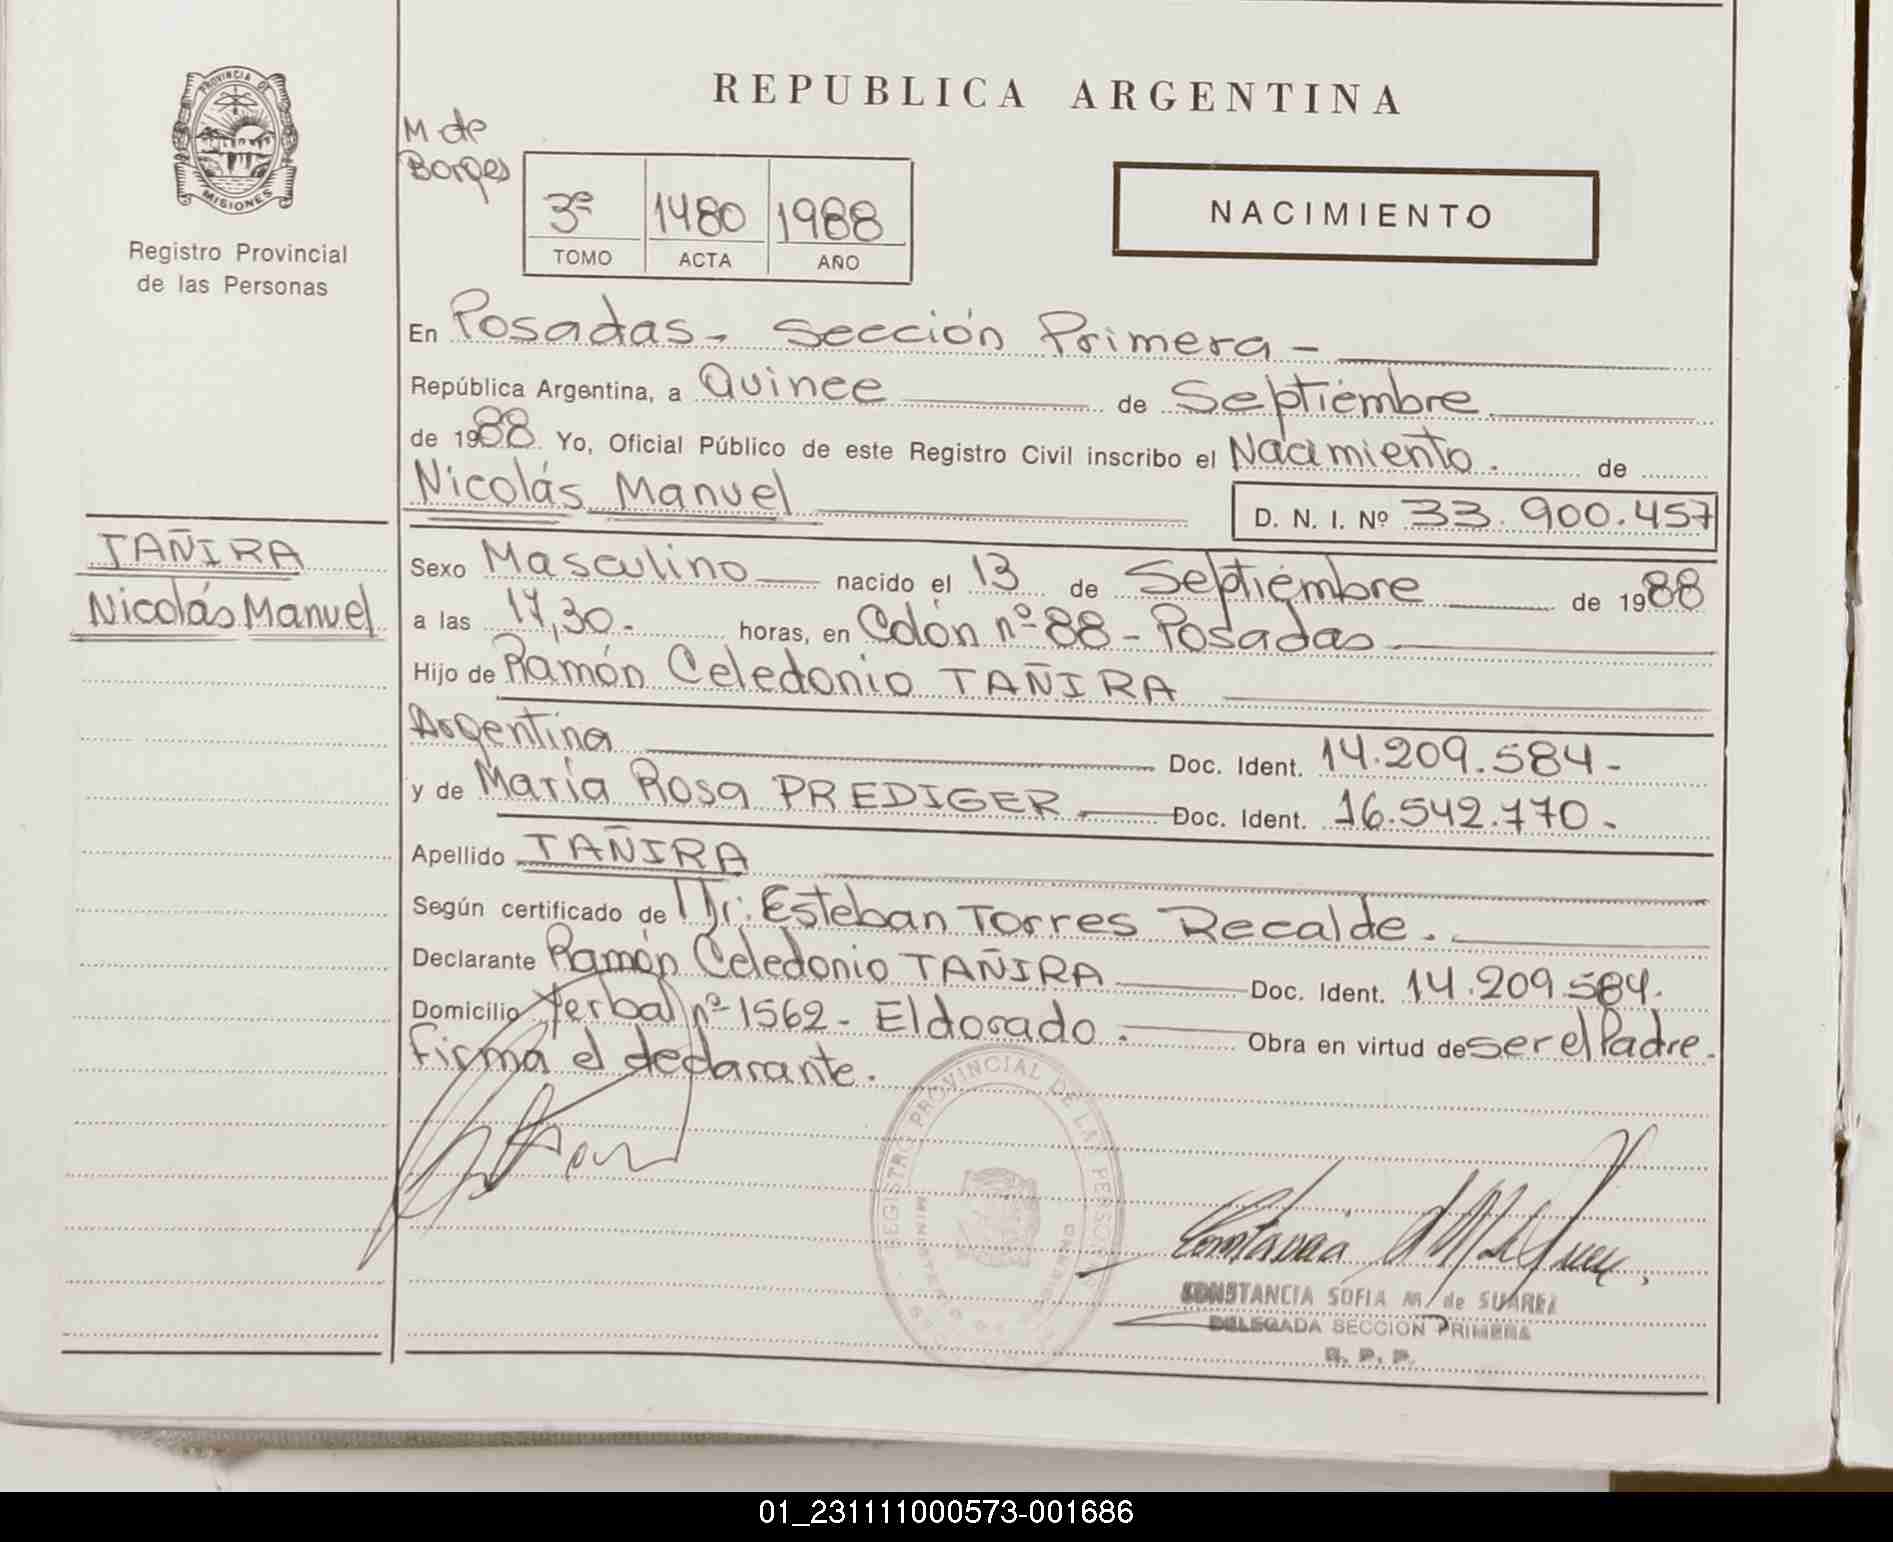 PROVINCIA DE
MISIONES
Registro Provincial
de las Personas
TAÑIRA
Nicolás Manuel
REPUBLICA ARGENTINA
M de
Borges
3º 1480 1988
TOMO ACTA AÑO
NACIMIENTO
En Posadas - Sección Primera -
República Argentina, a Quince de Septiembre
de 1988 Yo, Oficial Público de este Registro Civil inscribo el Nacimiento. de
Nicolás Manuel D. N. I. Nº 33.900.457
Sexo Masculino nacido el 13 de Septiembre de 1988
a las 17,30. horas, en Colón nº 88 - Posadas
Hijo de Ramón Celedonio TAÑIRA
Argentina Doc. Ident. 14.209.584-
y de María Rosa PREDIGER Doc. Ident. 16.542.770-
Apellido TAÑIRA
Según certificado de Dr. Esteban Torres Recalde.
Declarante Ramón Celedonio TAÑIRA Doc. Ident. 14.209.584.
Domicilio Yerbal nº 1562 - Eldorado. Obra en virtud de ser el Padre.
Firma el declarante.
REGISTRO PROVINCIAL DE LAS PERSONAS
MINISTERIO DE GOBIERNO
CONSTANCIA SOFIA M. de SUAREZ
DELEGADA SECCION PRIMERA
R. P. P.
01_231111000573-001686